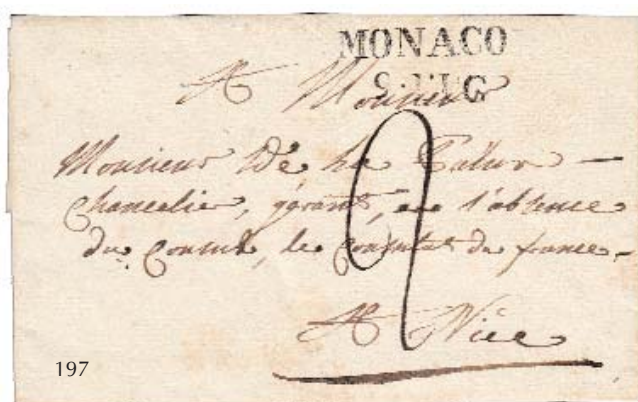 MONACO
9 LUG
A Monsieur
Monsieur De La
Chancelier, gérant, en l'absence
du Consul, le Consulat de france -
A Nice
2
197